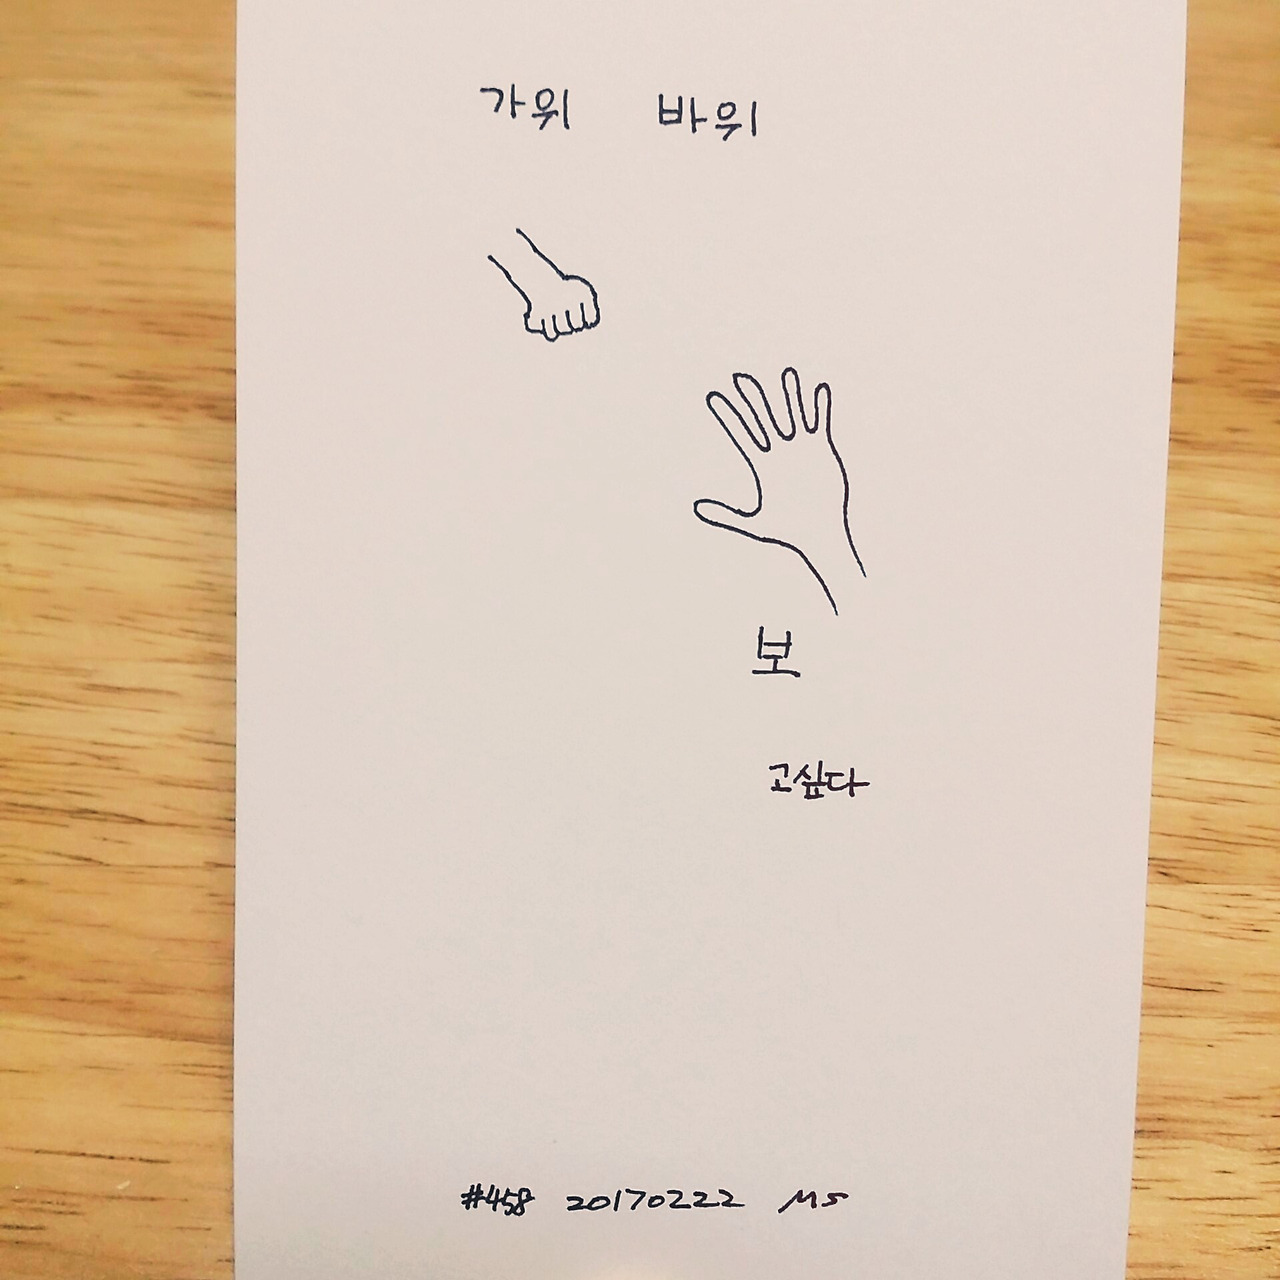 가위 바위
보
고싶다
#458 20170222 MS